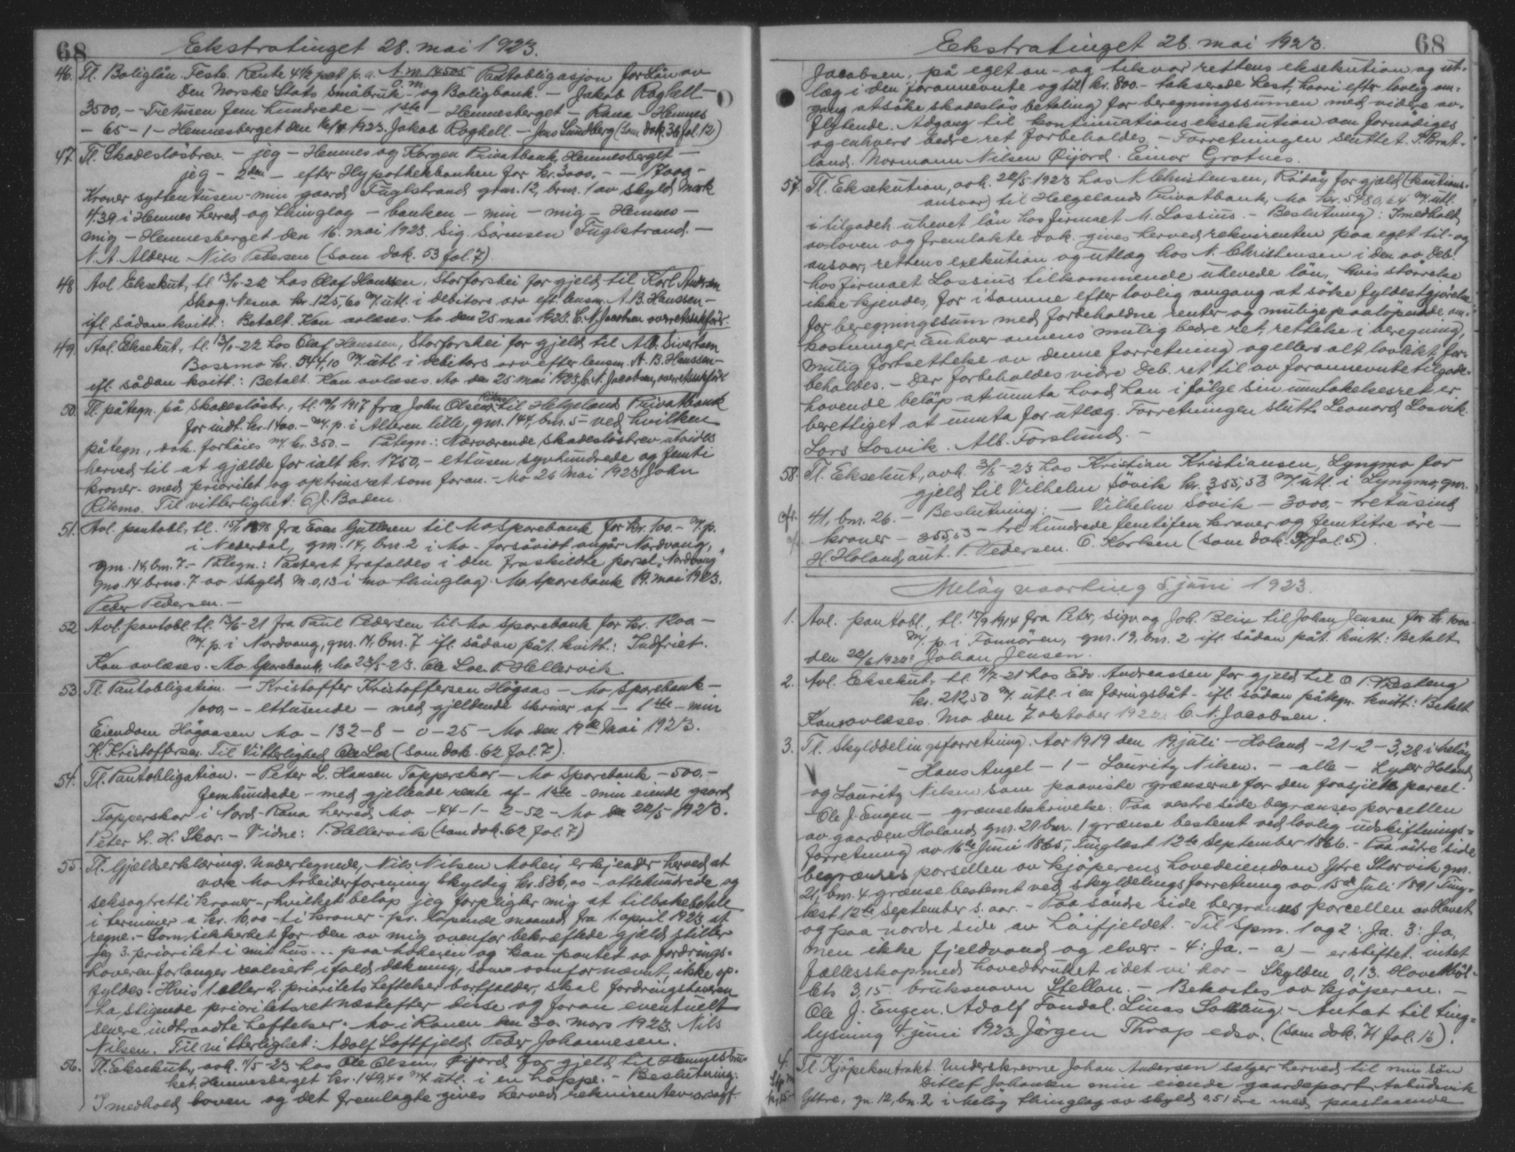 68
Ekstratinget 28. mai 1923.
46. Tl. Boliglån. Feste. Rente 4½ pct p.a. Pantobligasjon for Lån av
den Norske Stats Småbruk- og Boligbank. - Jakob Roghell -
3500,- Tretusen fem hundrede - 1ste - Hemnesberget Rana - Hemnes
- 65 - 1 - Hemnesberget den 1923. Jakob Roghell - Jens Lundberg (Som dok. 36 fol. 12)
47. Tl. Skadeslösbrev - jeg - Hemnes og Korgen Privatbank, Hemnesberget -
jeg - 2den - efter Hypothekbanken for kr. 3000.- - 17000,-
Kroner syttentusen - min gaard Fuglstrand gnr. 12, brnr. 1 av skyld Mark
4.39 i Hemnes herred og thinglag - banken - min - mig - Hemnes -
mig - Hemnesberget den 16. mai 1923. Sig. Sörensen Fuglstrand. -
N. A. Aldern Nils Petersen (som dok. 53 fol. 7)
48. Avl. Eksekut. tl. 13/1-22 hos Olaf Hanssen, Storforshei for gjeld til Karl Andersen
Skog. Mo kr. 125,60 m/ utl. i debitors arv eft. lensm. A. B. Hanssen -
ifl. sådan kvitt: Betalt. Kan avlæses. Mo den 25 mai 1923. C. N. Jacobsen overretssakfører.
49. Avl. Eksekut. tl. 13/1-22 hos Olaf Hanssen, Storforshei for gjeld til Alb. Sivertsen
Bosmo kr. 544,10 m/ utl. i debitors arv efter lensm. A. B. Hanssen -
ifl. sådan kvitt: Betalt. Kan avlæses Mo den 25 mai 1923, C. N. Jacobsen, overretssakfører
50. Tl. påtegn. på skadeslösbr., tl. 1917 fra John Olsen til Helgeland Privatbank
for indt. kr. 1400.- m/ p. i Alteren lille, gnr. 144, bnr. 5 - ved hvilken
påtegn, dok. forhöies m/ kr. 350.- Påtegn: Nærværende skadeslösbrev utvides
herved til at gjælde for ialt kr. 1750,- ettusen, syvhundrede og femti
kroner - med prioritet og optrinsret som foran. - Mo 26 mai 1923 John
Til vitterlighet: C. J. Baden.
51. Avl. pantobl. tl. fra Guttersen til Mo Sparebank for kr. 100.- m/ p.
i Nederdal, gnr. 14, bnr. 2 i Mo - forsåvidt angår Nordvang,
gnr. 14, bnr. 7. - Påtegn: Panteret frafaldes i den fraskilte parsel, "Nordvang"
gnr. 14 brnr. 7 av skyld m. 0,13 i Mo thinglag. Mo Sparebank 14. mai 1923.
Peder Pedersen. -
52. Avl. pantobl. tl. 13/6-21 fra Paul Pedersen til Mo Sparebank for kr. 1200 -
m/ p. i Nordvang, gnr. 14, bnr. 7 ifl. sådan påt. kvitt: Indfriet.
Kan avlæses. Mo Sparebank, Mo 23/5-23. Ole Loe. P. Hellervik
53. Tl. Pantobligation. - Kristoffer Kristoffersen Högaas - Mo Sparebank -
1000,- - ettusende - med gjeldende skriver af - 1ste - min
Eiendom Högaasen Mo - 132 - 8 - 0 - 25 - Mo den 19de Mai 1923.
K. Kristoffersen. Til Vitterlighed Ole Loe (som dok. 62 fol. 7).
54. Tl. Pantobligation. - Peter L. Hansen Tapperskar - Mo Sparebank - 500.-
femhundrede - med gjeldende rente af - 1ste - min eiende gaard
Tapperskar i Nord-Rana herred Mo - 44 - 1 - 2 - 52 - Mo den 22/5 1923.
Peter L. H. Skar. - Vidne: P. Hellervik (som dok. 62 fol. 7)
55. Tl. Gjælderklæring. Undertegnede, Nils Nilsen Moheia, erkjender herved at
være Mo Arbeiderforening skyldig kr. 836,00 - ottehundrede og
seksogtretti kroner - hvilket belöp jeg forpligter mig at tilbakebetale
i terminer a kr. 10,00 - ti kroner - pr. löpende maaned, fra 1 april 1923 at
regne. - Som sikkerhet for den av mig ovenfor bekræftede gjæld stiller
jeg 3. prioritet i mit hus... paa Moheien og kan pantet av fordrings-
haveren forlanges realisert ifald dækning, som ovenfor nævnt, ikke op-
fyldes. Hvis 1. eller 2. prioritets heftelser bortfalder, skal fordringshaveren
ha stigende prioritetsret næstefter disse og foran eventuelt
senere indtraadte heftelser. Mo i Ranen den 30. mars 1923. Nils
Nilsen. Til vitterlighet: Adolf Loftfjeld. Peder Johannesen.
56. Tl. Eksekut., avh. 11/5-23 hos Ole Olsen Öijord for gjeld til Hemnesbru-
ket, Hemnesberget kr. 149,40 m/ utl. i en hoppe. - Beslutning:
I medhold loven og det fremlagte gives herved rekvirenten
68
Ekstratinget 28. mai 1923.
Jacobsen, på eget an- og tilsvar rettens eksekution og ut-
læg i den forannevnte og til kr. 800.- takserede hest, hvori efter lovlig om-
gang at söke skadeslös betaling for beregningssummen med videre av-
flytende. Adgang til kontinuationseksekution om fornödiges
og enhvers bedre ret forbeholdes - Forretningen sluttet. P. Brat-
land. Normann Nilsen Öijord. Einar Grotnes.
57. Tl. Eksekution, avh. 22/5 1923 hos N. Christensen, Rådåg for gjæld (kautions-
ansvar) til Helgelands Privatbank, Mo kr. 5980,64 m/ utl.
i tilgodeh. uhevet lån hos firmaet M. Lossius. - Beslutning: I medhold
av loven og fremlakte dok. gives herved rekvirenten paa eget til- og
ansvar, rettens exekution og utlæg hos N. Christensen i den av Deb.
hos firmaet Lossius tilkommende uhevede lön, hvis störrelse
ikke kjendes, for i samme efter lovlig omgang at söke fyldestgjörelse
for beregningssum med forbeholdne renter og mulige paalöpende om-
kostninger. Enhver annens mulig bedre ret, rettelse i beregning,
mulig fortsettelse av denne forretning og ellers alt lovlikt for-
beholdes. - Der forbeholdes vidre Deb. ret til av forannevnte tilgode-
havende belöp at unnta hvad han i fölge sin unntakelsesret er
berettiget at unnta for utlæg. Forretningen slutt. Leonard Losvik
Lars Losvik. Alb. Forslund. -
58. Tl. Eksekut., avh. 3/5-23 hos Kristian Kristiansen, Lyngmo for
gjeld til Vilhelm Sövik kr. 355,53 m/ utl. i Lyngmo, gnr.
41, bnr. 26. Beslutning: - Vilhelm Sövik - 3000,- tretusind
kroner - 355,53 - tre hundrede femtifem kroner og femtitre öre -
H. Holand, aut. P. Pedersen. O. Karlsen (som dok. 37 fol. 5).
Melöy vaarting 5 juni 1923.
1. Avl. pantobl., tl. 17/9 1914 fra Petr. Sigv. og Joh. Blix til Johan Jensen for kr. 1000.-
m/ p. i Fonnören, gnr. 19, bnr. 2 ifl. sådan påt. kvitt: Betalt
den 22/6 1920. Johan Jensen.
2. Avl. Eksekut., tl. 21 hos Edv. Andreassen for gjeld til O.
kr. 212,50 m/ utl. i en færingsbåt - ifl. sådan påtegn. kvitt: Betalt
Kan avlæses. Mo den 7 oktober 1922. C. N. Jacobsen.
3. Tl. Skylddelingsforretning. Aar 1919 den 19. juli - Holand - 21 - 2 - 3,28 i Melöy
- Hans Angel - 1 - Lauritz Nilsen. - alle - Lyder Holand
og Lauritz Nilsen som paaviste grænserne for den fraskilte parcel.
Ole J. Engen - grænsebeskrivelse: Paa vestre side begrænses porcellen
av gaarden Holand gnr. 21 bnr. 1 grænse bestemt ved lovlig udskiftnings=
forretning av 16de juni 1865, Tinglæst 12te September 1866. - Paa östre side
begrænses porsellen av kjöperens hovedeiendom Ytre Storvik gnr.
21, bnr. 4 grænse bestemt ved skyldelingsforretning av 15de juli 1891 Ting-
læst 12te September s. aar. - Paa söndre side begrænses porcellen av Havet
og paa nordre side av Höifjeldet. - Til Spm. 1 og 2: Ja. 3: Ja,
men ikke fjeldvand og elver. - 4: Ja. - a) - er stiftet intet
fællesskap med hovedbruket idet vi har - Skylden 0,13. Hovedböl-
ets 3,15. bruksnavn Stellan. - Bekostes av kjöperen. -
Ole J. Engen. Adolf Fondal. Linus - Antat til ting=
lysning 4 juni 1923 Jörgen Thrap edsv. (som dok. 71 fol. 16).
4. Tl. Kjöpekontrakt. Underskrevne Johan Andersen sælger herved til min sön
Ditlef Johansen min eiende gaardspart
Ytre, gnr. 12, bnr. 2 i Melöy thinglag av skyld 0,51 öre med paastaaende